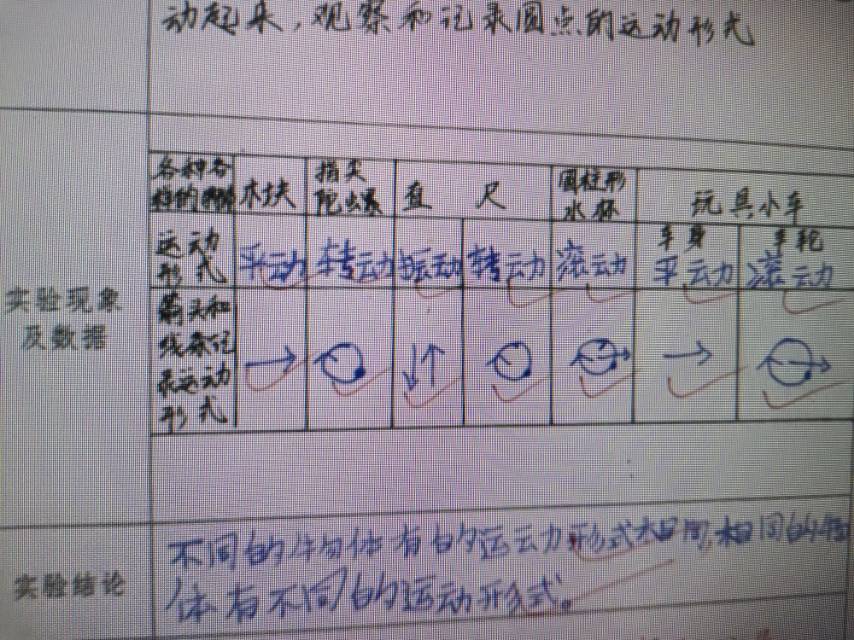 动起来，观察和记录圆点的运动形式
各种各
样的物体
木块
指尖
陀螺
直 尺
圆柱形
水杯
玩具小车
车身
车轮
运动
形式
平动
转动
振动
转动
滚动
平动
滚动
实验现象
及数据
箭头和
线条记
录运动
形式
实验结论
不同的物体有的运动形式相同,相同的物
体有不同的运动形式。